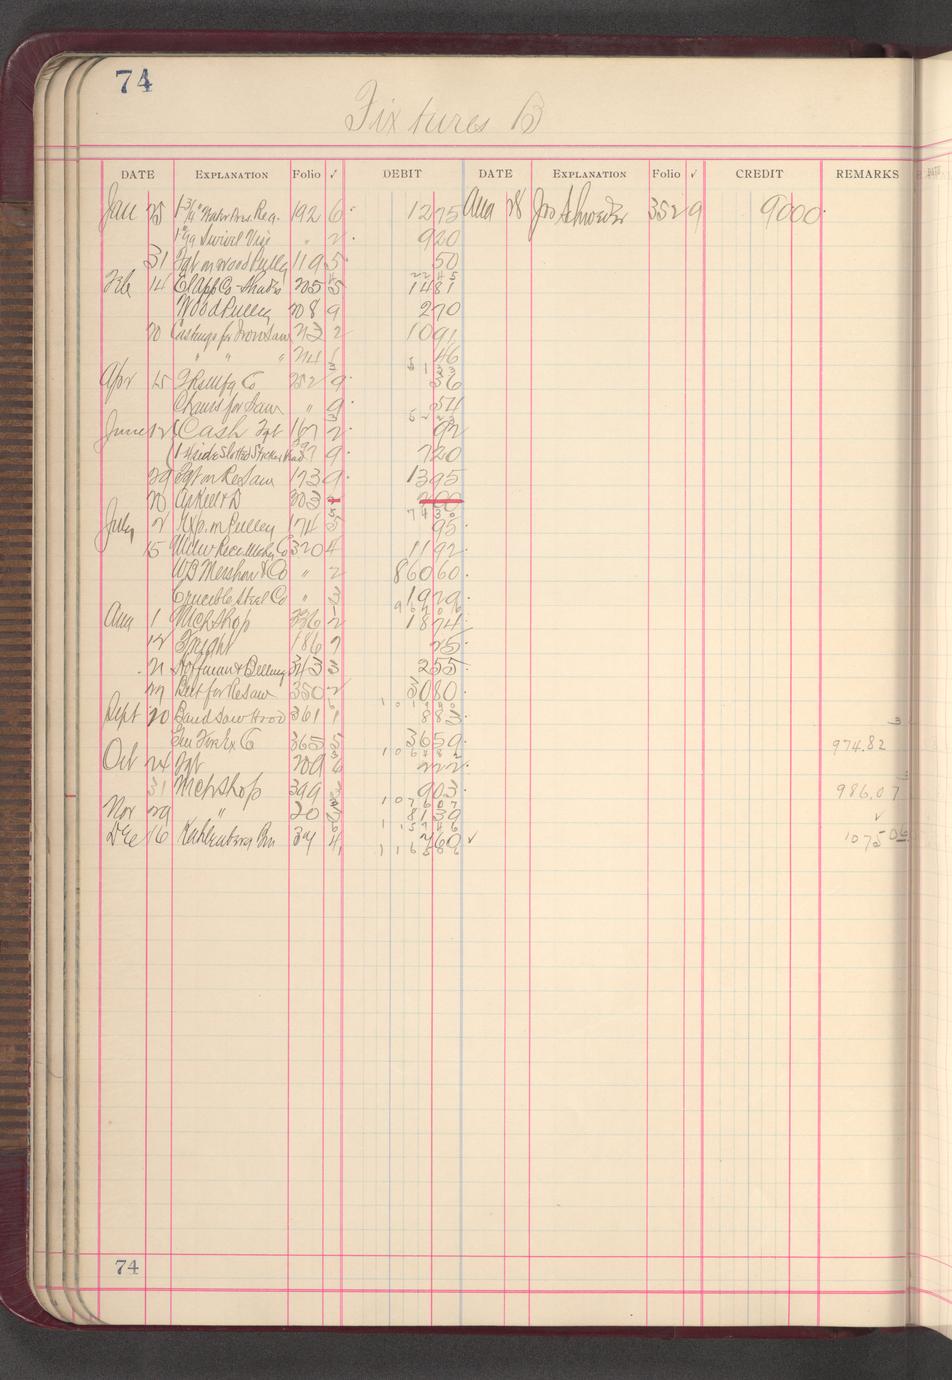 74
Fixtures B
DATE EXPLANATION Folio ✓ DEBIT DATE EXPLANATION Folio ✓ CREDIT REMARKS
Jan 25 1 3/4" Water Pres. Reg. 192 6 1275 Aug 28 Jos Schroeder 352 9 9000
Swivel Vise " 2 920
31 Fgt on Wood Pully 119 5 50
2245
Feb 14 El App Co Shades 205 5 1481
Wood Pulley 208 9 270
20 Castings for Iron Saw 213 2 1091
" " " 214 1 46
5133
Apr 15 Mfg Co 252 9 36
Chains for Saw " 9 54
5223
June 12 Cash Fgt 167 2 92
1 4 side Slotted Sticker Head 297 9 720
29 Fgt on Re Saw 173 9 1395
20 303 1 200
7430
July 2 Exp. on Pulley 174 5 95
15 Milw Reco Mchy Co 320 4 1192
W B Mershon & Co " 2 86060
Crucible Steel Co " 3 1929
Aug 1 Mch Shop 336 2 1874
12 Freight 186 7 25
21 Hoffman & Billings 343 3 255
27 Belt for Resaw 350 2 3080
Sept 20 Band Saw Hood 361 1 883
Gen Fire Ex Co 365 3659 974.82
Oct 24 Fgt 209 6 222
31 Mch Shop 399 903 986.07
107607
Nov 29 " 20 8139
Dec 16 Kahlenberg Bros 34 4 760 ✓ 1075 06
74